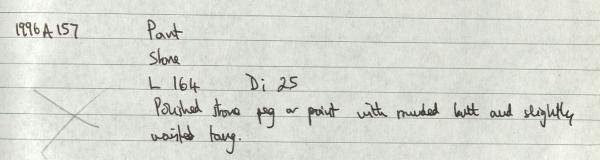 1996 A 157 Point
Stone
L 164 Di 25
Polished stone peg or point with rounded butt and slightly
waisted tang.